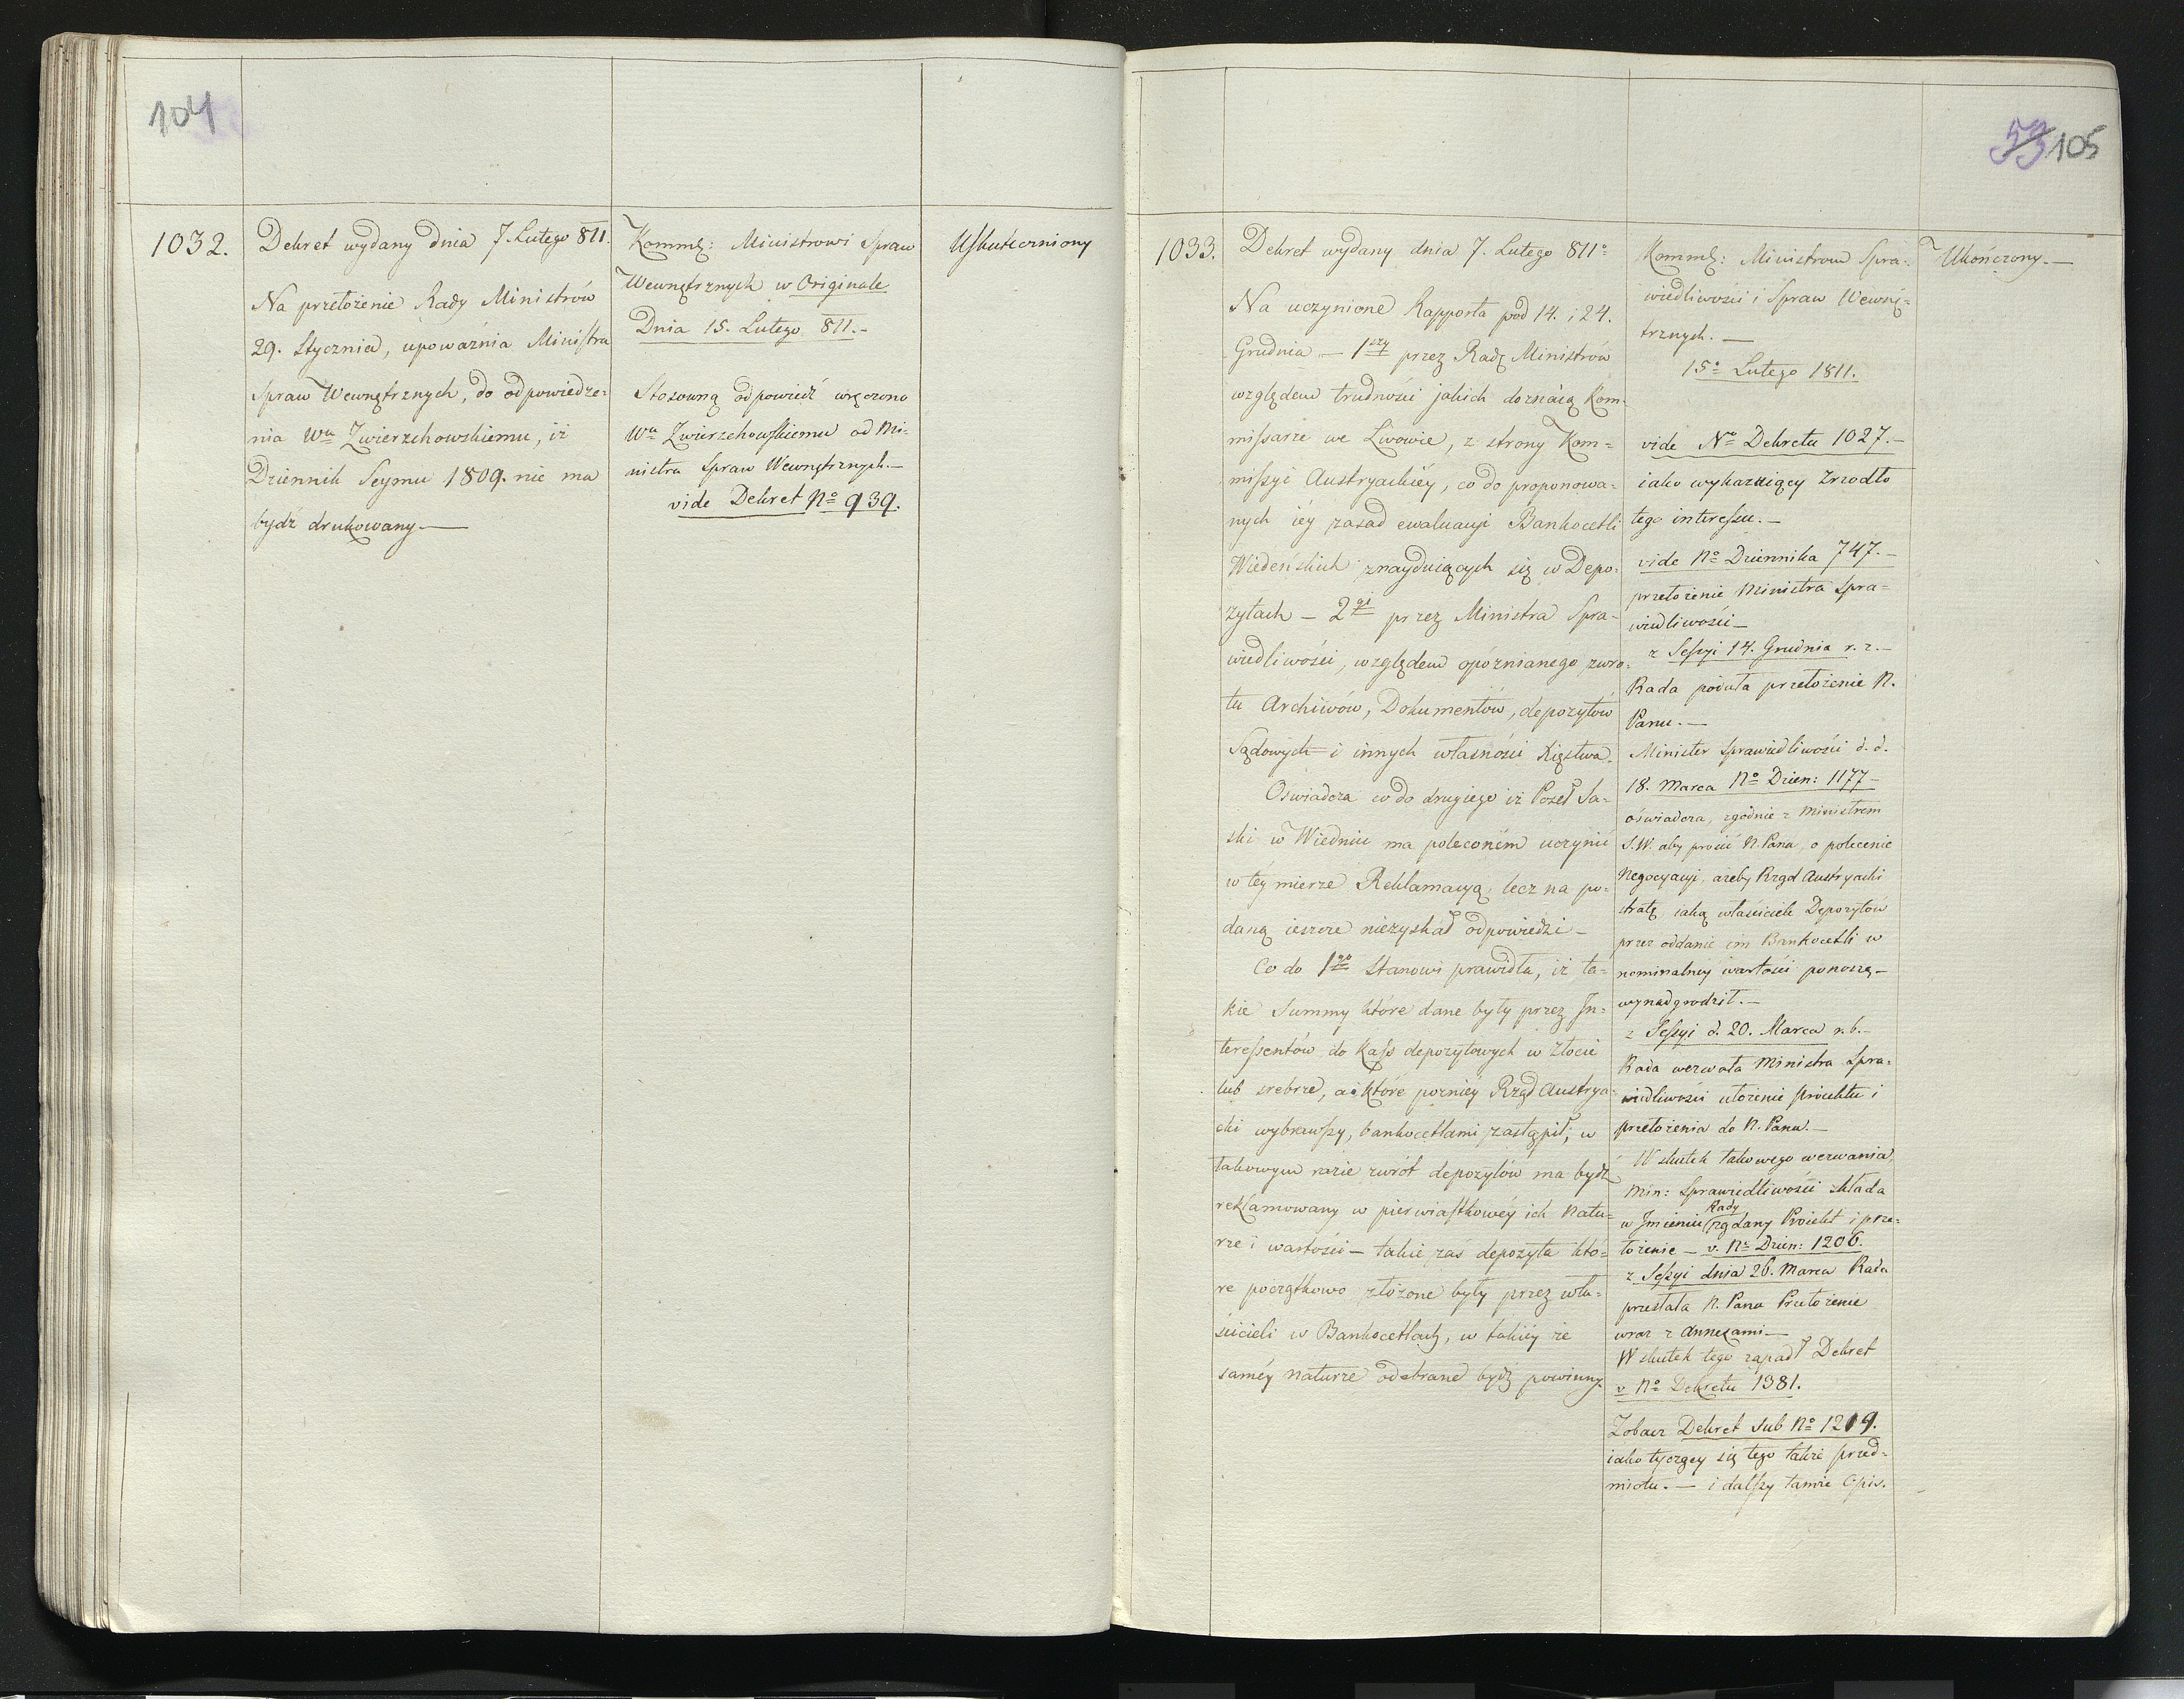 104
1032.
Dekret wydany dnia 7. Lutego 811.
Na przełożenie Rady Ministrów
29. Stycznia, upoważnia Ministra
Spraw Wewnętrznych, do odpowiedze=
nia Wu Zwierzchowskiemu, iż
Dziennik Seymu 1809. nie ma
bydź drukowany.—
Kommę: Ministrowi Spraw
Wewnętrznych w Originale
Dnia 15. Lutego 811.-
Stosowną odpowiedź wręczono
Wu Zwierzchowskiemu od Mi=
nistra Spraw Wewnętrznych.—
vide Dekret No 939.
Uskuteczniony
53 105
1033.
Dekret wydany dnia 7. Lutego 811o
Na uczynione Rapporta pod 14. i 24.
Grudnia — 1szy przez Radę Ministrów
względem trudności jakich doznaią Kom-
missarze we Lwowie, z strony Kom=
missyi Austryackiéy, co do proponowa=
nych iéy zasad ewaluacyi Bankocetli
Wiedeńskich znayduiących się w Depo=
zytach — 2gi przez Ministra Spra-
wiedliwości, względem opóznianego zwro=
tu Archiwów, Dokumentów, depozytów
Sądowych i innych własności Xięstwa.
Oswiadcza co do drugiego iż Poseł Sa=
ski w Wiedniu ma poleconém uczynić
w téy mierze Reklamacyą, lecz na po=
daną ieszcze niezyskał odpowiedzi —
Co do 1go Stanowi prawidła, iż ta=
kie Summy które dane były przez In=
teressentów do Kass depozytowych w złocie
lub srebrze, a które pozniéy Rząd Austrya=
cki wybrawszy, bankocetlami zastąpił, w
takowym razie zwrót depozytów ma bydź
reklamowany w pierwiastkowéy ich natu=
rze i wartości — takie zaś depozyta któ=
re początkowo złożone były przez wła=
ścicieli w Bankocetlach, w takiéy że
saméy naturze odebrane bydź powinny.
Kommę: Ministrom Spra=
wiedliwości i Spraw Wewnę=
trznych. —
15o Lutego 1811.
vide No Dekretu 1027.—
iako wykazuiący zrzodło
tego interessu.—
vide No Dziennika 747.—
przełożenie Ministra Spra=
wiedliwości—
z Sessyi 14. Grudnia r. z.—
Rada podała przełożenie N.
Panu.—
Minister Sprawiedliwości d. d.
18. Marca No Dzien: 1177—
oświadcza, zgodnie z Ministrem
S.W. aby prosić N. Pana, o polecenie
Negocyacyi, ażeby Rząd Austryacki
stratę iaką właściciele Depozytów
przez oddanie im Bankocetli w
nominalnéy wartości ponoszą—
wynadgrodził.—
z Sessyi d. 20. Marca r. b.—
Rada wezwała Ministra Spra=
wiedliwości ułożenie Proiektu i
przełożenia do N. Pana.—
W skutek takowego wezwania,
Min: Sprawiedliwości składa
w Imieniu Rady żądany Proiekt i prze=
łożenie — v. No Dzien: 1206.
z Sessyi dnia 26. Marca Rada
przesłała N. Panu Przełożenie
wraz z Annexami—
W skutek tego zapadł Dekret
v No Dekretu 1381.
Zobacz Dekret sub No 1219.
iako tyczący się tego także przed=
miotu.— i dalszy tamże Opis.
Ukończony.—